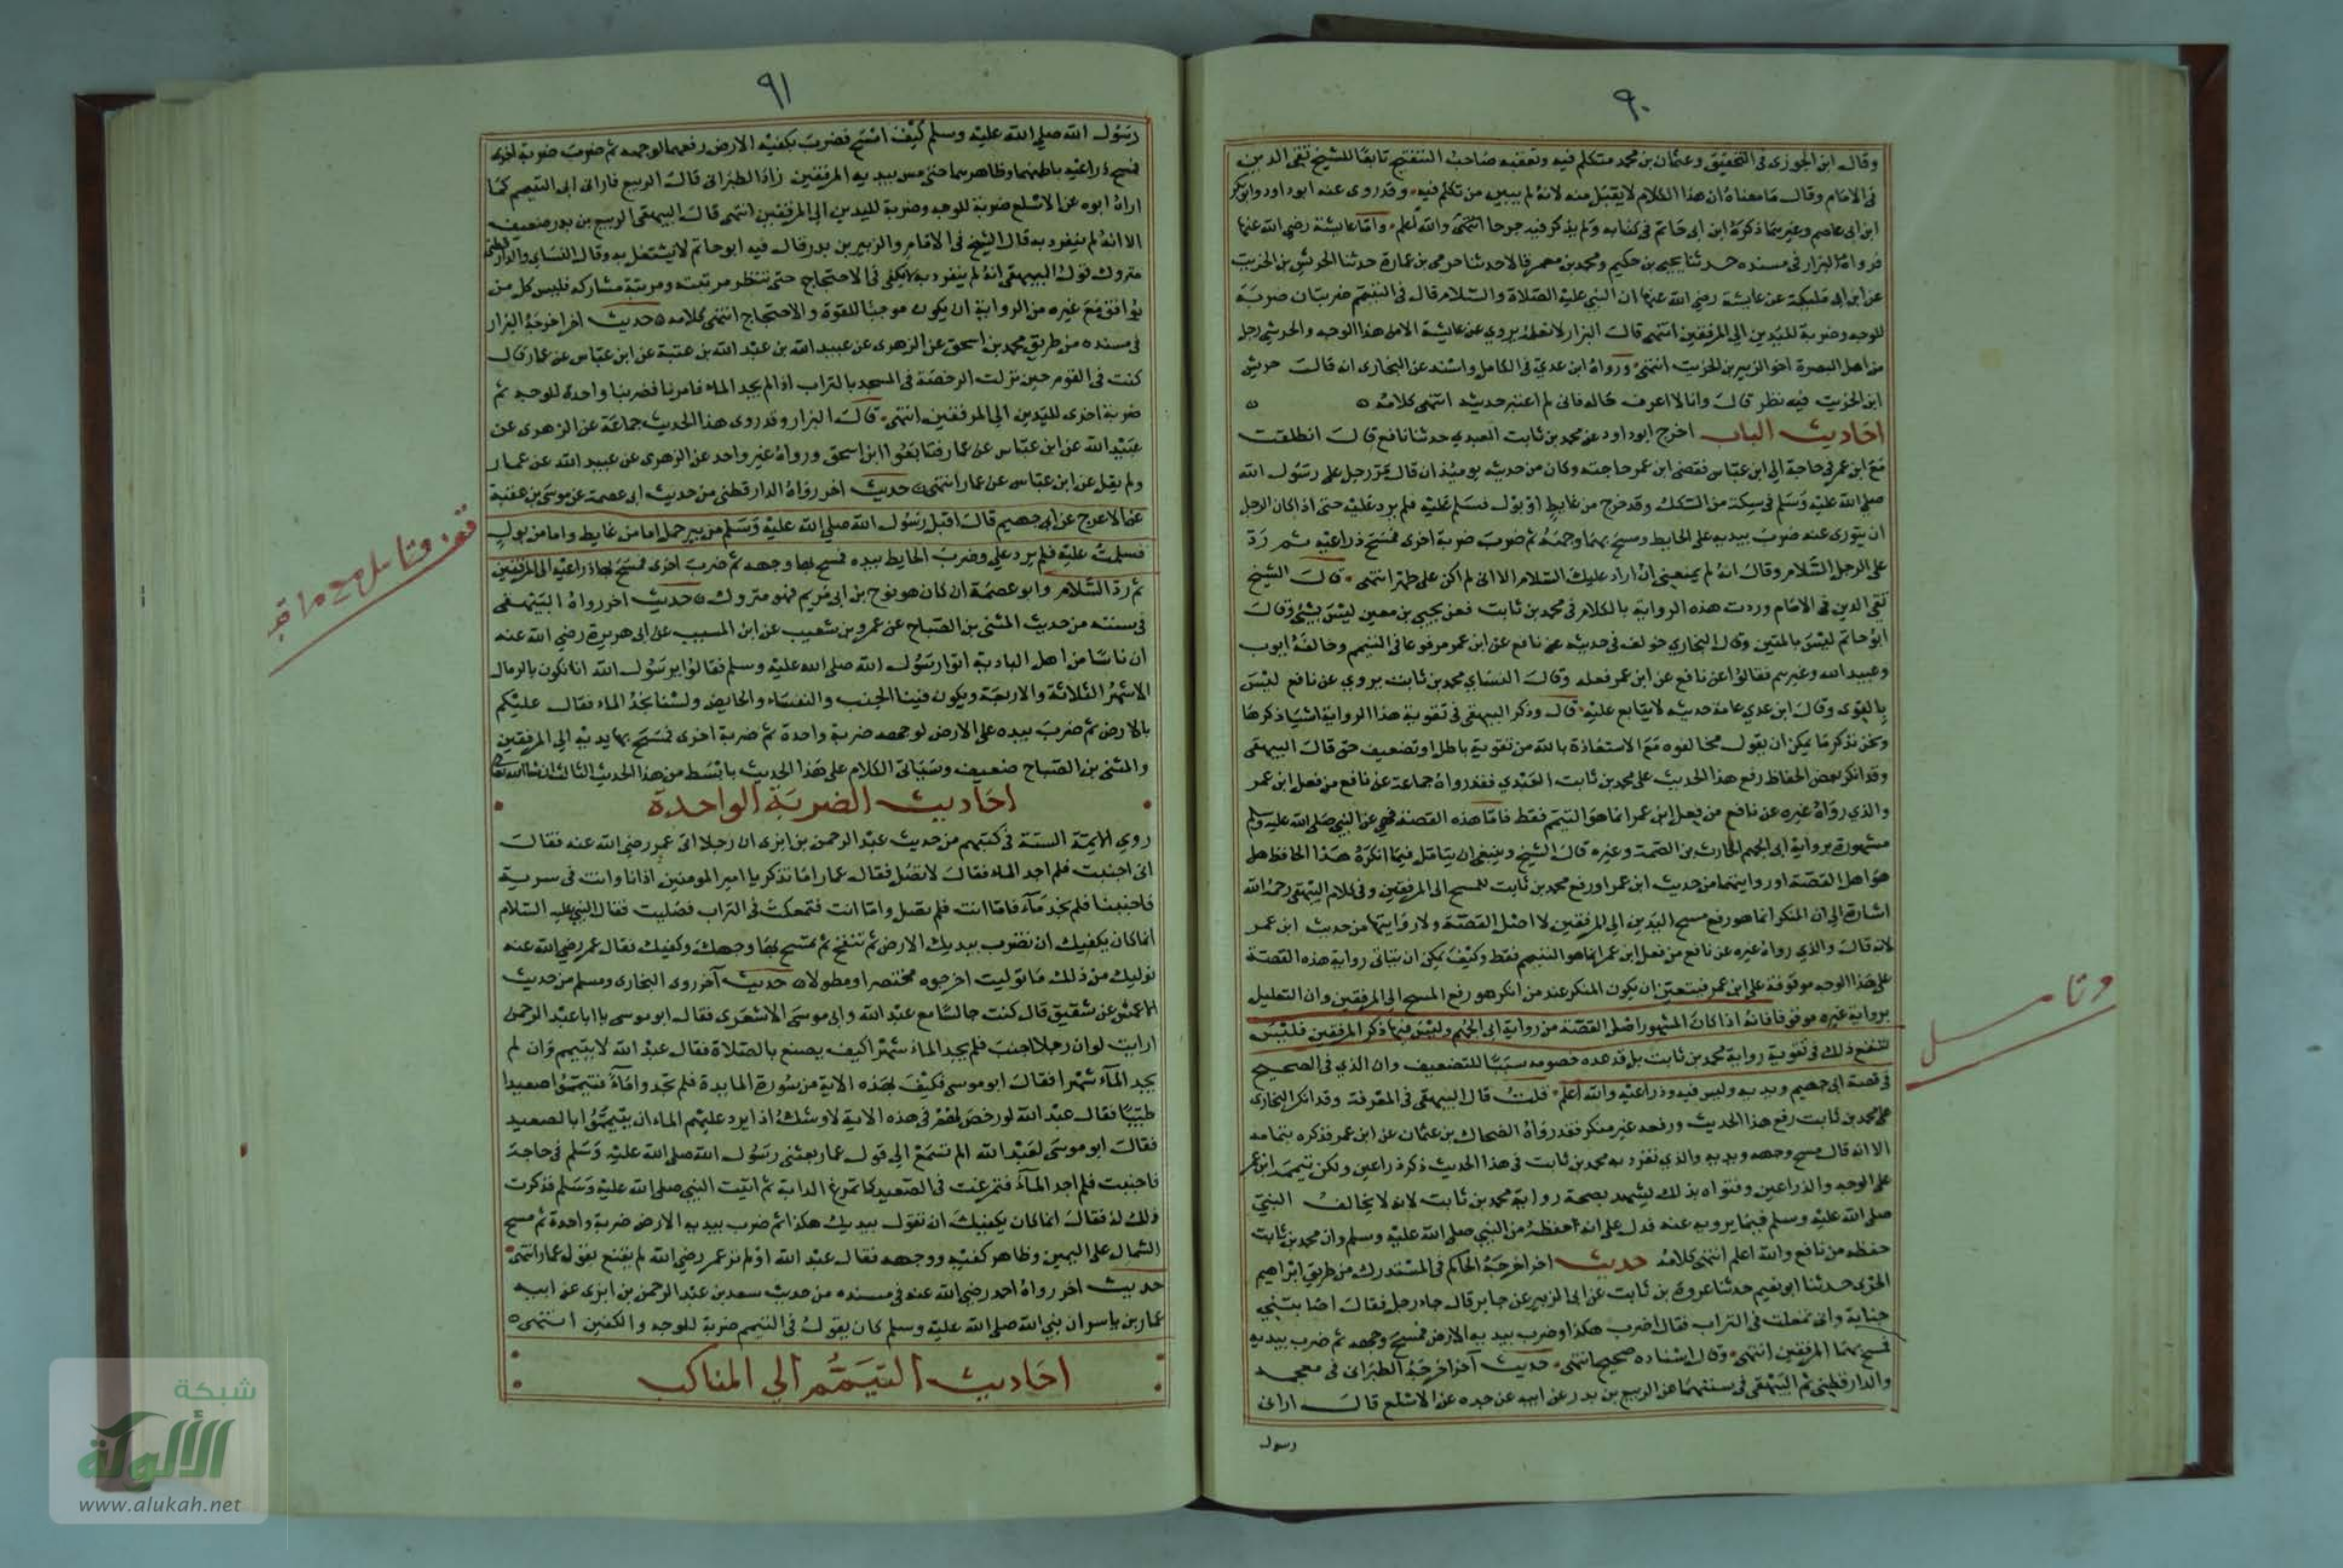 ٩٠
وقال ابن الجوزي في التحقيق وعثمان بن محمد متكلم فيه وتعقبه صاحب التنقيح تابعا للشيخ تقي الدين
في الامام وقال ما معناه ان هذا الكلام لا يقبل منه لانه لم يبين من تكلم فيه وقد روى عنه ابو داود وابو بكر
ابن ابي عاصم وغيرهما ذكره ابن ابي حاتم في كتابه ولم يذكر فيه جرحا انتهى والله اعلم واما عايشة رضي الله عنها
فرواه البزار في مسنده حدثنا يحيى بن حكيم ومحمد بن معمر قالا حدثنا حرمي بن عمارة حدثنا الحريش بن الخريت
عن ابن ابي مليكة عن عايشة رضي الله عنها ان النبي عليه الصلاة والسلام قال في التيمم ضربتان ضربة
للوجه وضربة لليدين الى المرفقين انتهى قال البزار لا نعلمه يروي عن عايشة الا من هذا الوجه والحريش رجل
من اهل البصرة اخو الزبير بن الخريت انتهى ورواه ابن عدي في الكامل واسند عن البخاري انه قال حريش
ابن الخريت فيه نظر قال وانا لا اعرف حاله فاني لم اعتبر حديثه انتهى كلامه
احاديث الباب اخرج ابو داود عن محمد بن ثابت العبدي حدثنا نافع قال انطلقت
مع ابن عمر في حاجة الى ابن عباس فقضى ابن عمر حاجته وكان من حديثه يوميذ ان قال مر رجل على رسول الله
صلى الله عليه وسلم في سكة من السكك وقد خرج من غايط او بول فسلم عليه فلم يرد عليه حتى اذا كان الرجل
ان يتورى عنه ضرب بيديه على الحايط ومسح بهما وجهه ثم ضرب ضربة اخرى فمسح ذراعيه ثم رد
على الرجل السلام وقال انه لم يمنعني ان ارد عليك السلام الا اني لم اكن على طهر انتهى قال الشيخ
تقي الدين في الامام وردت هذه الرواية بالكلام في محمد بن ثابت فعن يحيى بن معين ليس بشي وقال
ابو حاتم ليس بالمتين وقال البخاري خولف في حديثه عن نافع عن ابن عمر مرفوعا في التيمم وخالفه ايوب
وعبيد الله وغيرهم فقالوا عن نافع عن ابن عمر فعله وقال النساي محمد بن ثابت يروي عن نافع ليس
بالقوي وقال ابن عدي عامة حديثه لا يتابع عليه قال وذكر البيهقي في تقوية هذا الرواية اشيا ذكرها
ونحن نذكر ما يمكن ان يقول مخالفوه مع الاستعاذة بالله من تقوية باطل او تضعيف حق قال البيهقي
وقد انكر بعض الحفاظ رفع هذا الحديث على محمد بن ثابت العبدي فقد رواه جماعة عن نافع من فعل ابن عمر
والذي رواه غيره عن نافع من فعل ابن عمر انما هو التيمم فقط فاما هذه القصة فهي عن النبي صلى الله عليه وسلم
مشهورة برواية ابي الجهم الحارث بن الصمة وغيره قال الشيخ وينبغي ان يتامل فيما انكره هذا الحافظ هل
هو اصل القصة او روايتها من حديث ابن عمر او رفع محمد بن ثابت للمسح الى المرفقين وفي كلام البيهقي رحمه الله
اشارة الى ان المنكر انما هو رفع مسح اليدين الى المرفقين لا اصل القصة ولا روايتها من حديث ابن عمر
لانه قال والذي رواه غيره عن نافع من فعل ابن عمر انما هو التيمم فقط وكيف يمكن ان يتاتى رواية هذه القصة
على هذا الوجه موقوفة على ابن عمر فيتعين ان يكون المنكر عند من انكر هو رفع المسح الى المرفقين وان التعليل
برواية غيره موقوفا فانه اذا كان المشهور اصل القصة من رواية ابي الجهم وليس فيها ذكر المرفقين فليس
تنفع ذلك في تقوية رواية محمد بن ثابت بل قد عده خصومه سببا للتضعيف وان الذي في الصحيح
في قصة ابي جهيم ويديه وليس فيه وذراعيه والله اعلم قلت قال البيهقي في المعرفة وقد انكر البخاري
على محمد بن ثابت رفع هذا الحديث ورفعه غير منكر فقد رواه الضحاك بن عثمان عن ابن عمر فذكره بتمامه
الا انه قال مسح وجهه ويديه والذي تفرد به محمد بن ثابت في هذا الحديث ذكر ذراعين ولكن تيمم ابن عمر
على الوجه والذراعين وفتواه بذلك يشهد بصحة رواية محمد بن ثابت لانه لا يخالف النبي
صلى الله عليه وسلم فيما يرويه عنه فدل على انه احفظه من النبي صلى الله عليه وسلم وان محمد بن ثابت
حفظه من نافع والله اعلم انتهى كلامه حديث اخر اخرجه الحاكم في المستدرك من طريق ابراهيم
الحربي حدثنا ابو نعيم حدثنا عروة بن ثابت عن ابي الزبير عن جابر قال جاء رجل فقال اصابتني
جنابة واني تمعكت في التراب فقال اضرب هكذا وضرب بيديه الارض فمسح وجهه ثم ضرب بيديه
فمسح بهما المرفقين انتهى وقال اسناده صحيح انتهى حديث آخر اخرجه الطبراني في معجمه
والدارقطني ثم البيهقي في سننهما عن الربيع بن بدر عن ابيه عن جده عن الاسلع قال اراني
رسول
وتامل
٩١
رسول الله صلى الله عليه وسلم كيف امسح فضرب بكفيه الارض رفعهما لوجهه ثم ضرب ضربة اخرى
فمسح ذراعيه باطنهما وظاهرهما حتى مس بيديه المرفقين زاد الطبراني قال الربيع فاراني ابي التيمم كما
اراه ابوه عن الاسلع ضربة للوجه وضربة لليدين الى المرفقين انتهى قال البيهقي الربيع بن بدر ضعيف
الا انه لم ينفرد به قال الشيخ في الامام والزبير بن بدر قال فيه ابو حاتم لا يشتغل به وقال النساي والدارقطني
متروك قول البيهقي انه لم ينفرد به لا يكفي في الاحتجاج حتى ننظر مرتبته ومرتبة مشاركه فليس كل من
يوافق مع غيره من الرواية ان يكون موجبا للقوة والاحتجاج انتهى كلامه حديث اخر اخرجه البزار
في مسنده من طريق محمد بن اسحق عن الزهري عن عبيد الله بن عبد الله بن عتبة عن ابن عباس عن عمار قال
كنت في القوم حين نزلت الرخصة في المسح بالتراب اذا لم يجد الماء فامرنا فضربنا واحدة للوجه ثم
ضربة اخرى لليدين الى المرفقين انتهى قال البزار وقد روى هذا الحديث جماعة عن الزهري عن
عبيد الله عن ابن عباس عن عمار فتابعوا ابن اسحق ورواه غير واحد عن الزهري عن عبيد الله عن عمار
ولم يقل عن ابن عباس عن عمار انتهى حديث اخر رواه الدارقطني من حديث ابي عصمة عن موسى بن عقبة
عن الاعرج عن ابي جهيم قال اقبل رسول الله صلى الله عليه وسلم من بير جمل اما من غايط واما من بول
فسلمت عليه فلم يرد علي وضرب الحايط بيده فمسح بها وجهه ثم ضرب اخرى فمسح بها ذراعيه الى المرفقين
ثم رد السلام وابو عصمة ان كان هو نوح بن ابي مريم فهو متروك حديث اخر رواه البيهقي
في سننه من حديث المثنى بن الصباح عن عمرو بن شعيب عن ابن المسيب عن ابي هريرة رضي الله عنه
ان ناسا من اهل البادية اتوا رسول الله صلى الله عليه وسلم فقالوا يرسول الله انا نكون بالرمال
الاشهر الثلاثة والاربعة ويكون فينا الجنب والنفساء والحايض ولسنا نجد الماء فقال عليكم
بالارض ثم ضرب بيده على الارض لوجهه ضربة واحدة ثم ضربة اخرى فمسح بها يديه الى المرفقين
والمثنى بن الصباح ضعيف وسياتي الكلام على هذا الحديث بابسط من هذا الحديث الثالث ان شاء الله تعالى
احاديث الضربة الواحدة
روي الايمة الستة في كتبهم من حديث عبد الرحمن بن ابزى ان رجلا اتى عمر رضي الله عنه فقال
اني اجنبت فلم اجد الماء فقال لا تصل فقال عمار اما تذكر يا امير المومنين اذ انا وانت في سرية
فاجنبنا فلم نجد ماء فاما انت فلم تصل واما انا فتمعكت في التراب فصليت فقال النبي عليه السلام
انما كان يكفيك ان تضرب بيديك الارض ثم تنفخ ثم تمسح بهما وجهك وكفيك فقال عمر رضي الله عنه
نوليك من ذلك ما توليت اخرجوه مختصرا ومطولا حديث آخر روى البخاري ومسلم من حديث
الاعمش عن شقيق قال كنت جالسا مع عبد الله وابي موسى الاشعري فقال ابو موسى يا ابا عبد الرحمن
ارايت لو ان رجلا اجنب فلم يجد الماء شهرا كيف يصنع بالصلاة فقال عبد الله لا يتيمم وان لم
يجد الماء شهرا فقال ابو موسى فكيف بهذه الاية من سورة المايدة فلم تجدوا ماء فتيمموا صعيدا
طيبا فقال عبد الله لو رخص لهم في هذه الاية لاوشك اذا برد عليهم الماء ان يتيمموا بالصعيد
فقال ابو موسى لعبد الله الم تسمع الى قول عمار بعثني رسول الله صلى الله عليه وسلم في حاجة
فاجنبت فلم اجد الماء فتمرغت في الصعيد كما تمرغ الدابة ثم اتيت النبي صلى الله عليه وسلم فذكرت
ذلك له فقال انما كان يكفيك ان تقول بيديك هكذا ثم ضرب بيديه الارض ضربة واحدة ثم مسح
الشمال على اليمين وظاهر كفيه ووجهه فقال عبد الله اولم تر عمر رضي الله لم يقنع بقول عمار انتهى
حديث اخر رواه احمد رضي الله عنه في مسنده من حديث سعد بن عبد الرحمن بن ابزى عن ابيه
عمار بن ياسر ان نبي الله صلى الله عليه وسلم كان يقول في التيمم ضربة للوجه والكفين انتهى
احاديث التيمم الي المناكب
شبكة
الألوكة
www.alukah.net